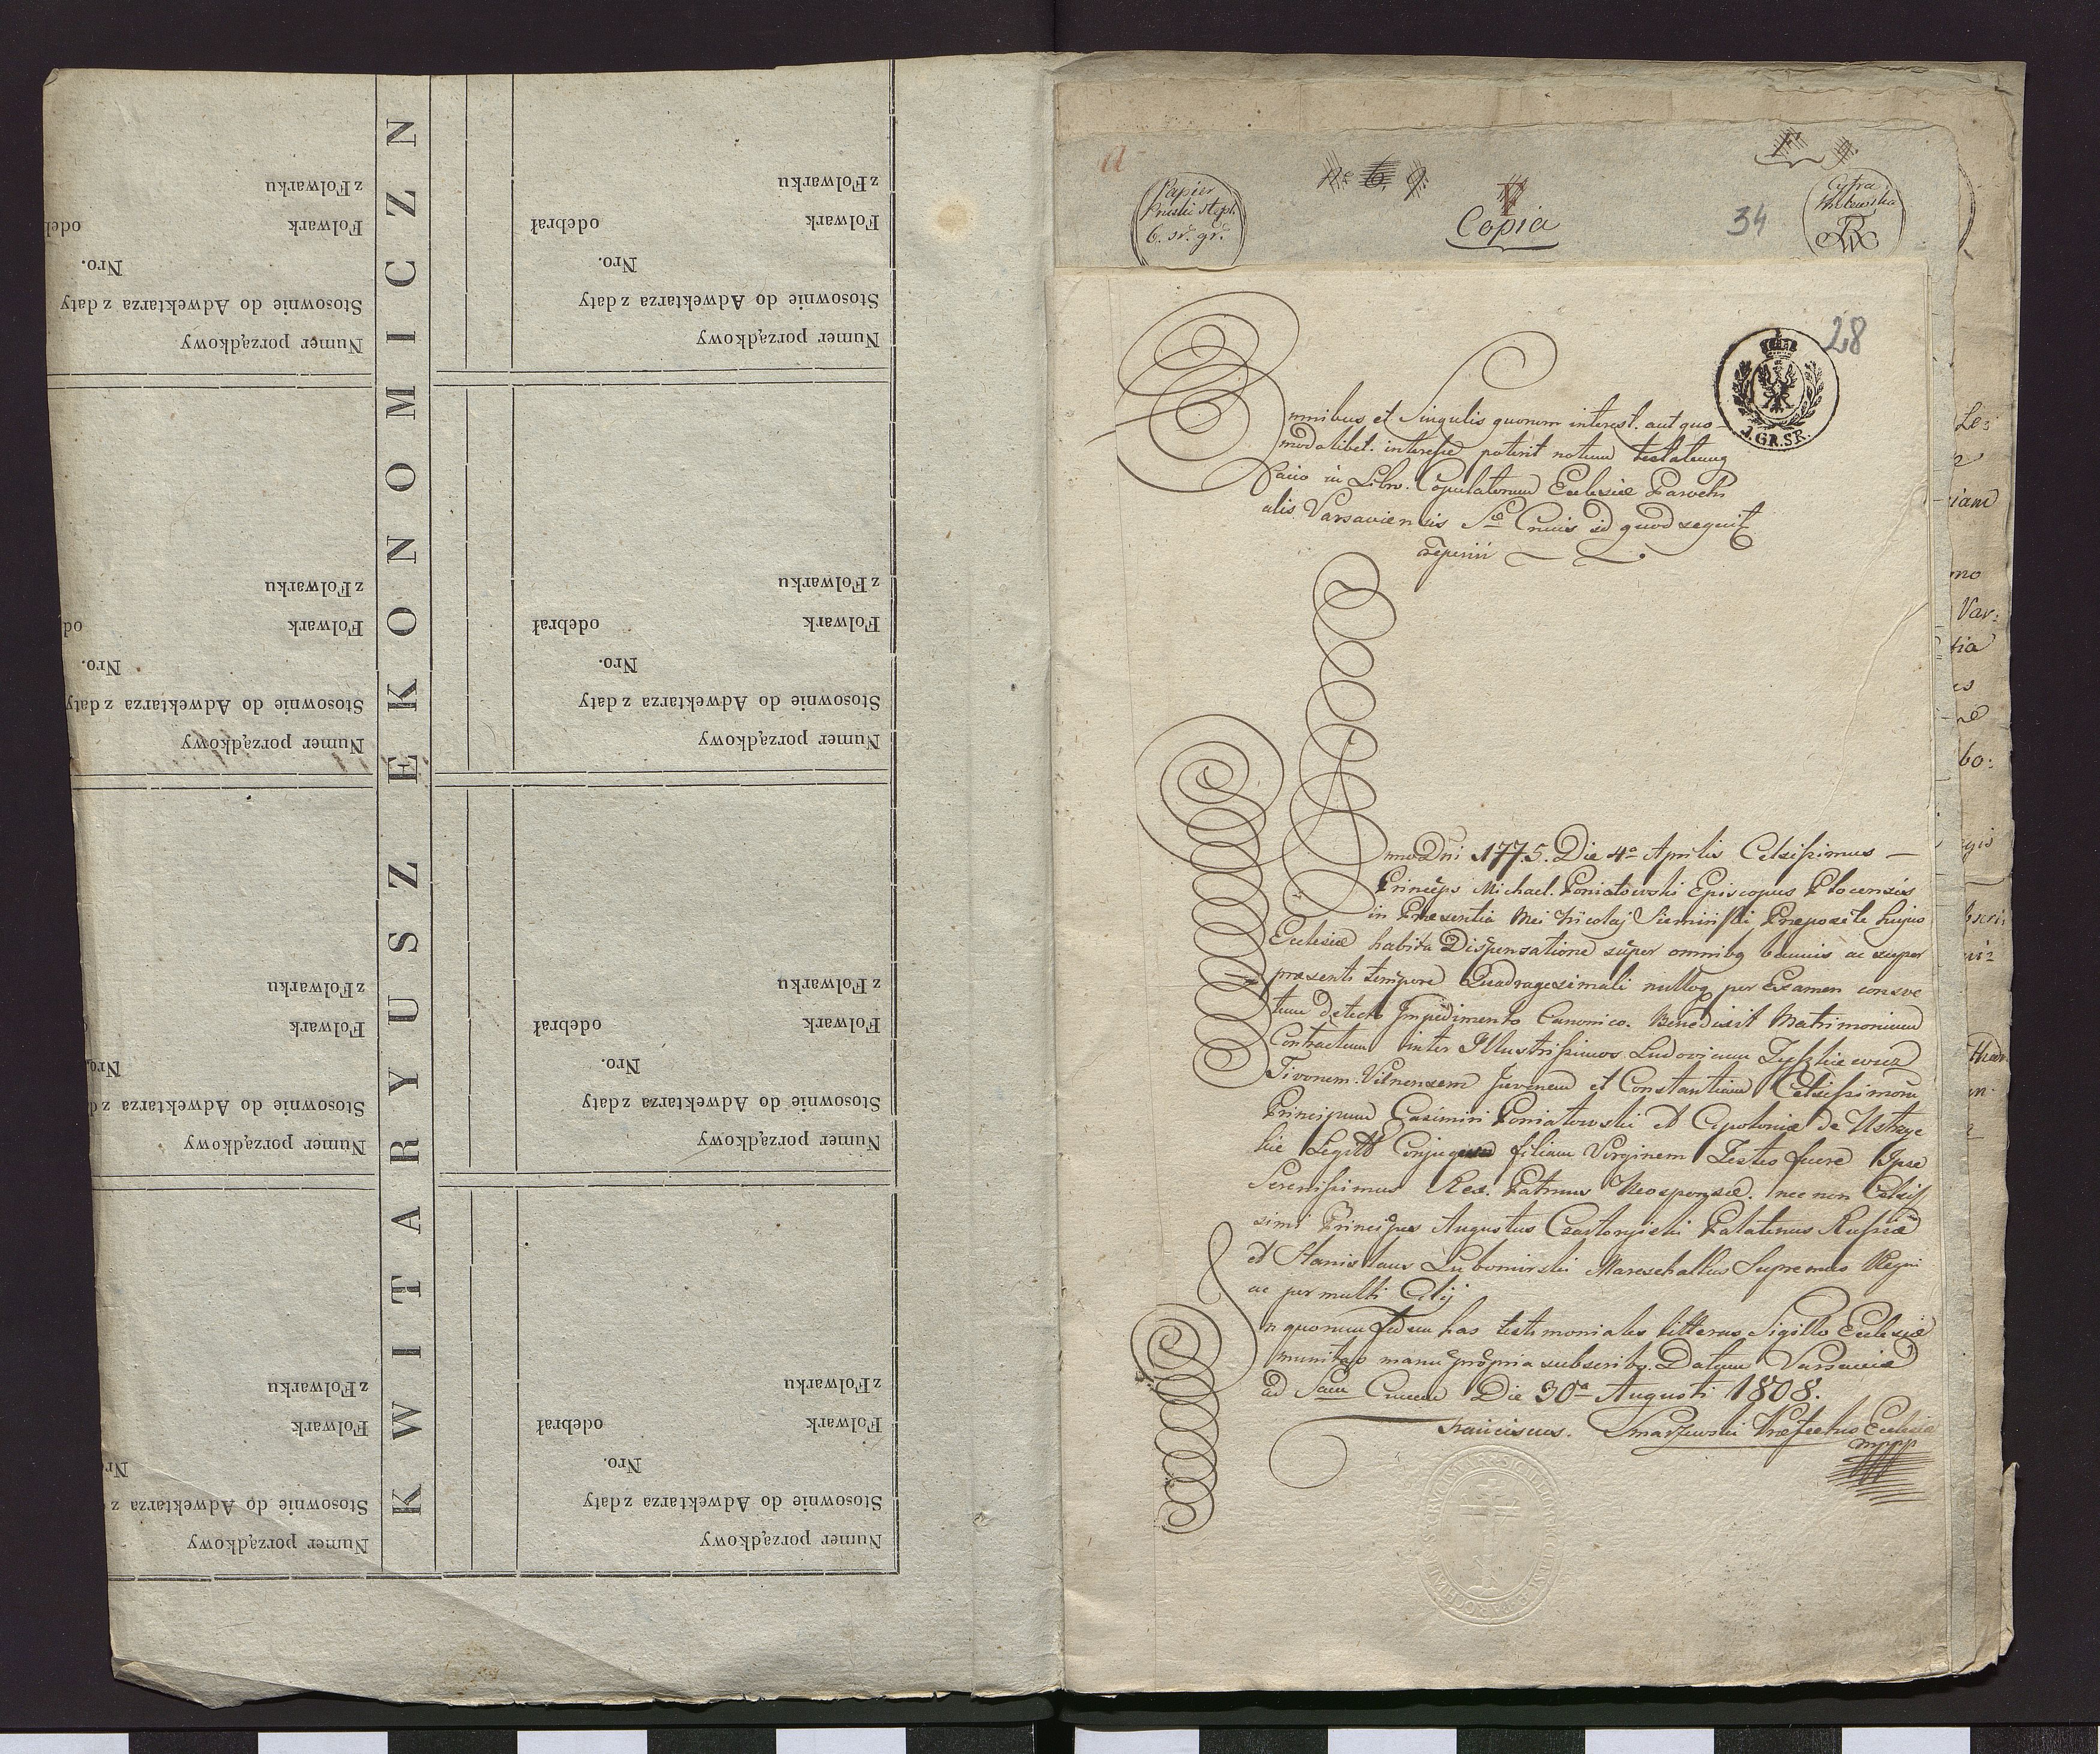 KWITARYUSZ EKONOMICZN
Numer porządkowy
Stosownie do Adwektarza z daty
Nro.
Folwark odebrał
z Folwarku
Numer porządkowy
Stosownie do Adwektarza z daty
Nro.
Folwark odebrał
z Folwarku
Numer porządkowy
Stosownie do Adwektarza z daty
Nro.
Folwark odebrał
z Folwarku
Numer porządkowy
Stosownie do Adwektarza z daty
Nro.
Folwark odebrał
z Folwarku
Numer porządkowy
Stosownie do Adwektarza z
Nr
Folwark
z Folwarku
Numer porządkowy
Stosownie do Adwektarza z d
Nro.
Folwark
z Folwarku
Numer porządkowy
Stosownie do Adwektarza z daty
Nro.
Folwark od
z Folwarku
Numer porządkowy
Stosownie do Adwektarza z daty
Nro.
Folwark odeb
z Folwarku
a
Papier
Pruski stepl.
6. sr. gr.
9.
Copia
34
Cyfra
28
3.GR.SR.
Omnibus et Singulis quorum interest. aut quo-
modolibet. interesse poterit notum testatumq
Facio in Libro. Copulatorum Ecclesiæ Parochi
alis Varsaviensis S<sup>æ</sup> Crucis id quod sequit
reperiii
Anno Dni 1775. Die 4<sup>a</sup> Aprilis Celsissimus —
Princeps Michael. Poniatowski Episcopus Plocensis
in Præsentia Mei Nicolaj Siemiński Præposite hujus
Ecclesiæ habita Dispensatione super omnibq bannis ac super
præsenti tempore Quadragesimali nulloq per Examen consve
tum detecto Impedimento Canonico. Benedixit Matrimonium
Contractum inter Illustrissimos Ludovicum Tyszkiewicz
Tivonem. Vilnensem Juvenem et Constantiam Celsissimoru
Principum Casimiri Poniatowski et Apoloniæ de Ustrzyc
kie Legitt Conjugum filiam Virginem Testes fuere Ipse
Serenissimus Rex. Patruus Neosponsæ. nec non Celsis
simi Principes Augustus Czartoryiski Palatinus Russiæ
et Stanislaus Lubomirski Mareschallus Supremus Regni
ac per multi Alij
In quorum fidem has testimoniales litteras Sigillo Ecclesiæ
munitas manu propria subscribo. Datum Varsaviæ
ad Sam Crucem Die 30<sup>a</sup> Augusti 1808.
Franciscus. Smarzewski Præfectus Ecclesiæ
mppp